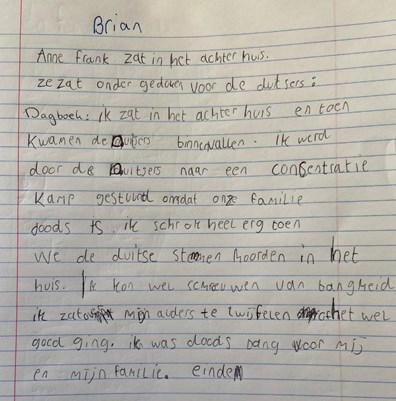 Brian
Anne Frank zat in het achter huis.
ze zat onder gedoken voor de duitsers:
Dagboek: ik zat in het achter huis en toen
Kwamen de Duitsers binnenvallen. Ik werd
door de Duitsers naar een consentratie
Kamp gestuurd omdat onze familie
joods is. ik schrok heel erg toen
we de duitse stemmen hoorden in het
huis. Ik kon wel schreeuwen van bangheid
ik zat mijn auders te twijfelen het wel
goed ging. ik was doods bang voor mij
en mijn familie. einde